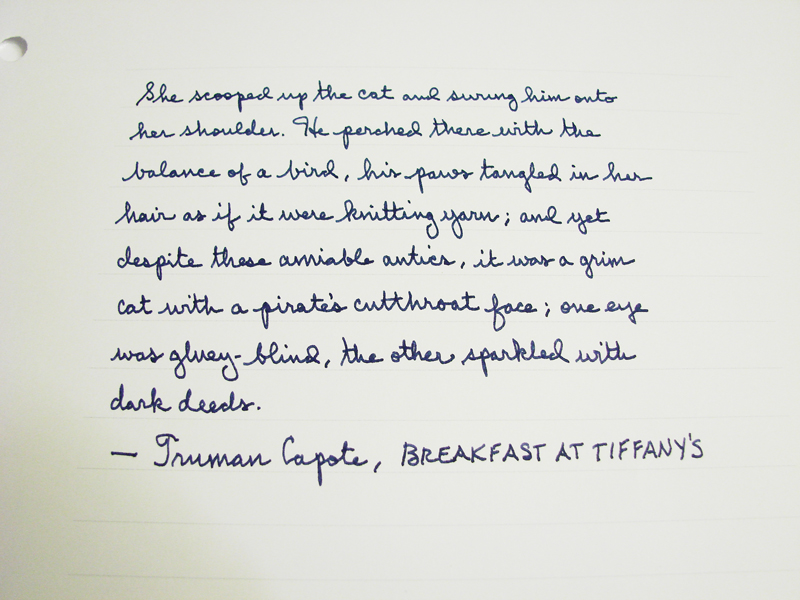 She scooped up the cat and swung him onto
her shoulder. He perched there with the
balance of a bird, his paws tangled in her
hair as if it were knitting yarn; and yet
despite these amiable antics, it was a grim
cat with a pirate's cutthroat face; one eye
was gluey-blind, the other sparkled with
dark deeds.
— Truman Capote, BREAKFAST AT TIFFANY'S